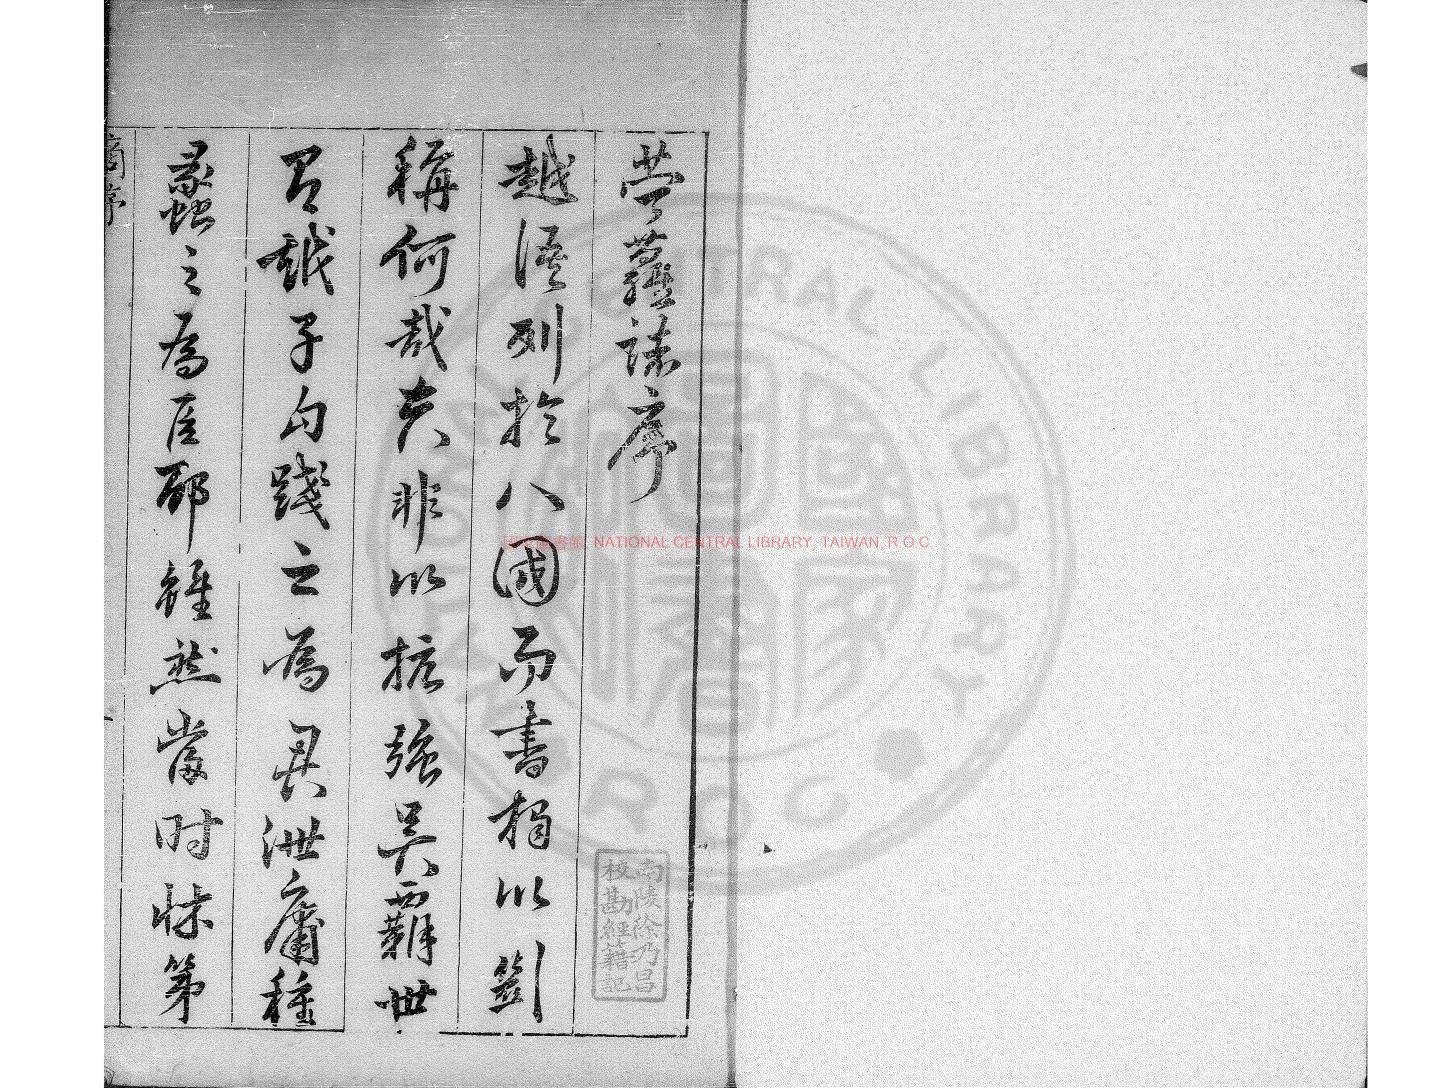 苧蘿誌序
越語列於八國而書獨以
稱何哉夫非以抗強吳霸世
有越子勾踐之為君泄庸種
蠡之為臣耶雖然當時怵第
南陵徐乃昌
校勘經籍記
國家圖書館 NATIONAL CENTRAL LIBRARY, TAIWAN, R.O.C